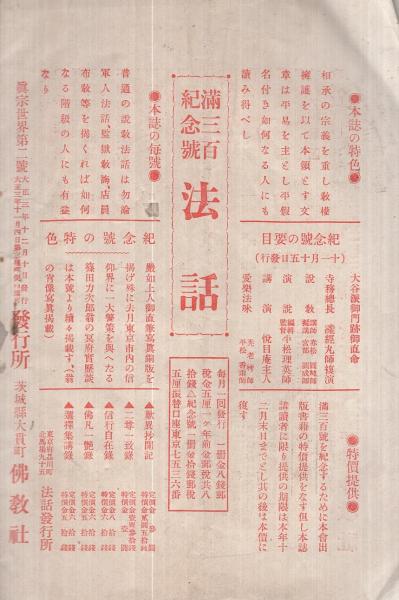 ●本誌の特色●
相承の宗義を重し敎權
擁護を以て本領とす文
章は平易を主とし平假
名付き如何なる人にも
讀み得べし
滿三百
紀念號
法話
●本誌の每號●
普通の說敎法話は勿論
軍人法話監獄敎誨、店員
布敎等を揭くれば如何
なる階級の人にも有益
なり
紀念號の要目
(十一月十五日發行)
大谷派御門跡御直命
寺務總長
說敎
講演
演說
愛樂法味
紀念號の特色
嚴如上人御直筆寫眞銅版を
揭げ殊に去月東京市內の信
仰界に一大警策を與へたる
篠田力次郞翁の冥府實歷談
は本號より續々揭載す、(翁
の肖像寫眞揭載)
●特價提供●
滿三百號を紀念するために本會出
版書籍の特價提供をなす但し本誌
講讀者に限り提供の期限は本年十
二月末日までとし其の後は本價に
復す
每月一回發行 一册金八錢郵
稅金五厘一ヶ年前金郵稅共八
拾錢△紀念號一册金拾錢郵
五厘振替口座東京七五三六番
▲歎異抄聞記
▲二尊一致錄
▲信行自在錄
▲佛凡一體錄
▲選擇集講錄
法話發行所
眞宗世界第二號
大正三年十二月十日發行
發行所
茨城縣大貫町
佛敎社